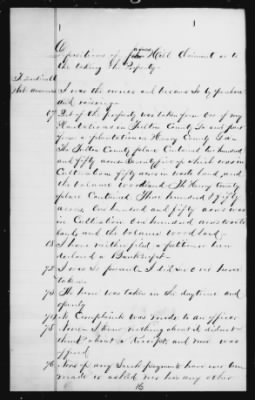 Depositions of Hall Claimant as to
the taking the Property.
I was the owner and became so by purchase
and raising.
57 Part of the property was taken from one of my
Plantations in Fulton County Ga and part
from a plantation in Henry County Ga.
The Fulton County place Contained two hundred
and fifty acres twenty five of which was in
Cultivation fifty acres in waste land, and
the balance woodland. The Henry County
place Contained Three hundred & fifty
acres One hundred and fifty acres was
in Cultivation One hundred acres waste
land and the balance woodland.
18. I have neither filed a petition nor been
declared a Bankrupt.
72 I was not present I did not see it
taken.
73 The horse was taken in the daytime and
openly
74 No Complaint was made to an officer
75 I know nothing about it
think about a Receipt and none was
offered
76 None of any Such payment have ever been
made or asked nor has any other
16